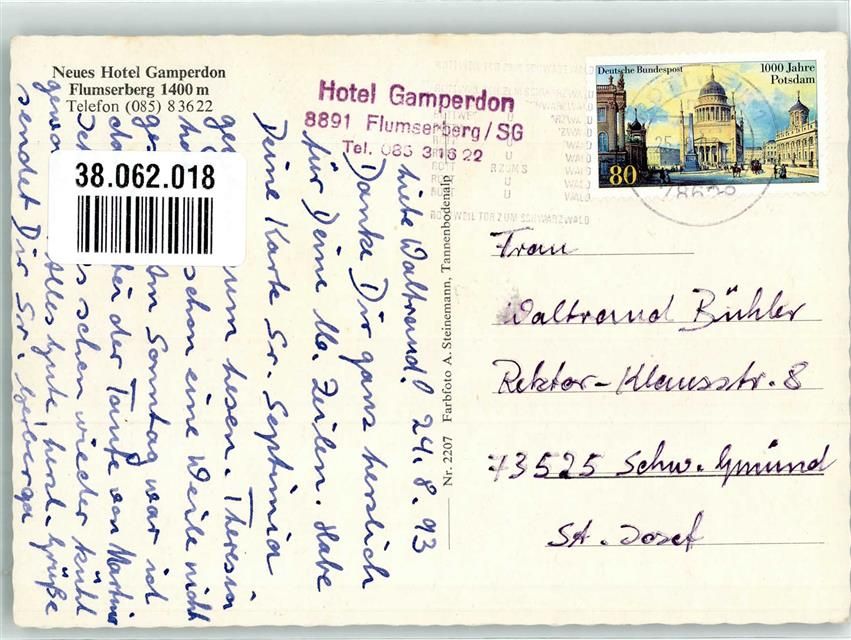 Neues Hotel Gamperdon
Flumserberg 1400 m
Telefon (085) 83622
Hotel Gamperdon
8891 Flumserberg/SG
Tel. 085 31622
Deutsche Bundespost
1000 Jahre
Potsdam
80
78628
ROTTWEIL TOR ZUM SCHWARZWALD
38.062.018
Nr. 2207 Farbfoto A. Steinemann, Tannenbodenalp
Frau
Waltraud Bühler
Rektor-Klausstr. 8
73525 Schw. Gmünd
St. Josef
24.8.93
Liebe Waltraud!
Danke Dir ganz herzlich
für Deine lb. Zeilen. Habe
Deine Karte Sr. Septimia
zum lesen. Theresia
schon eine Weile nicht
Am Sonntag war ich
bei der Taufe von Martina
schon wieder kühl
Alles Gute herzl. Grüße
sendet Dir Sr.